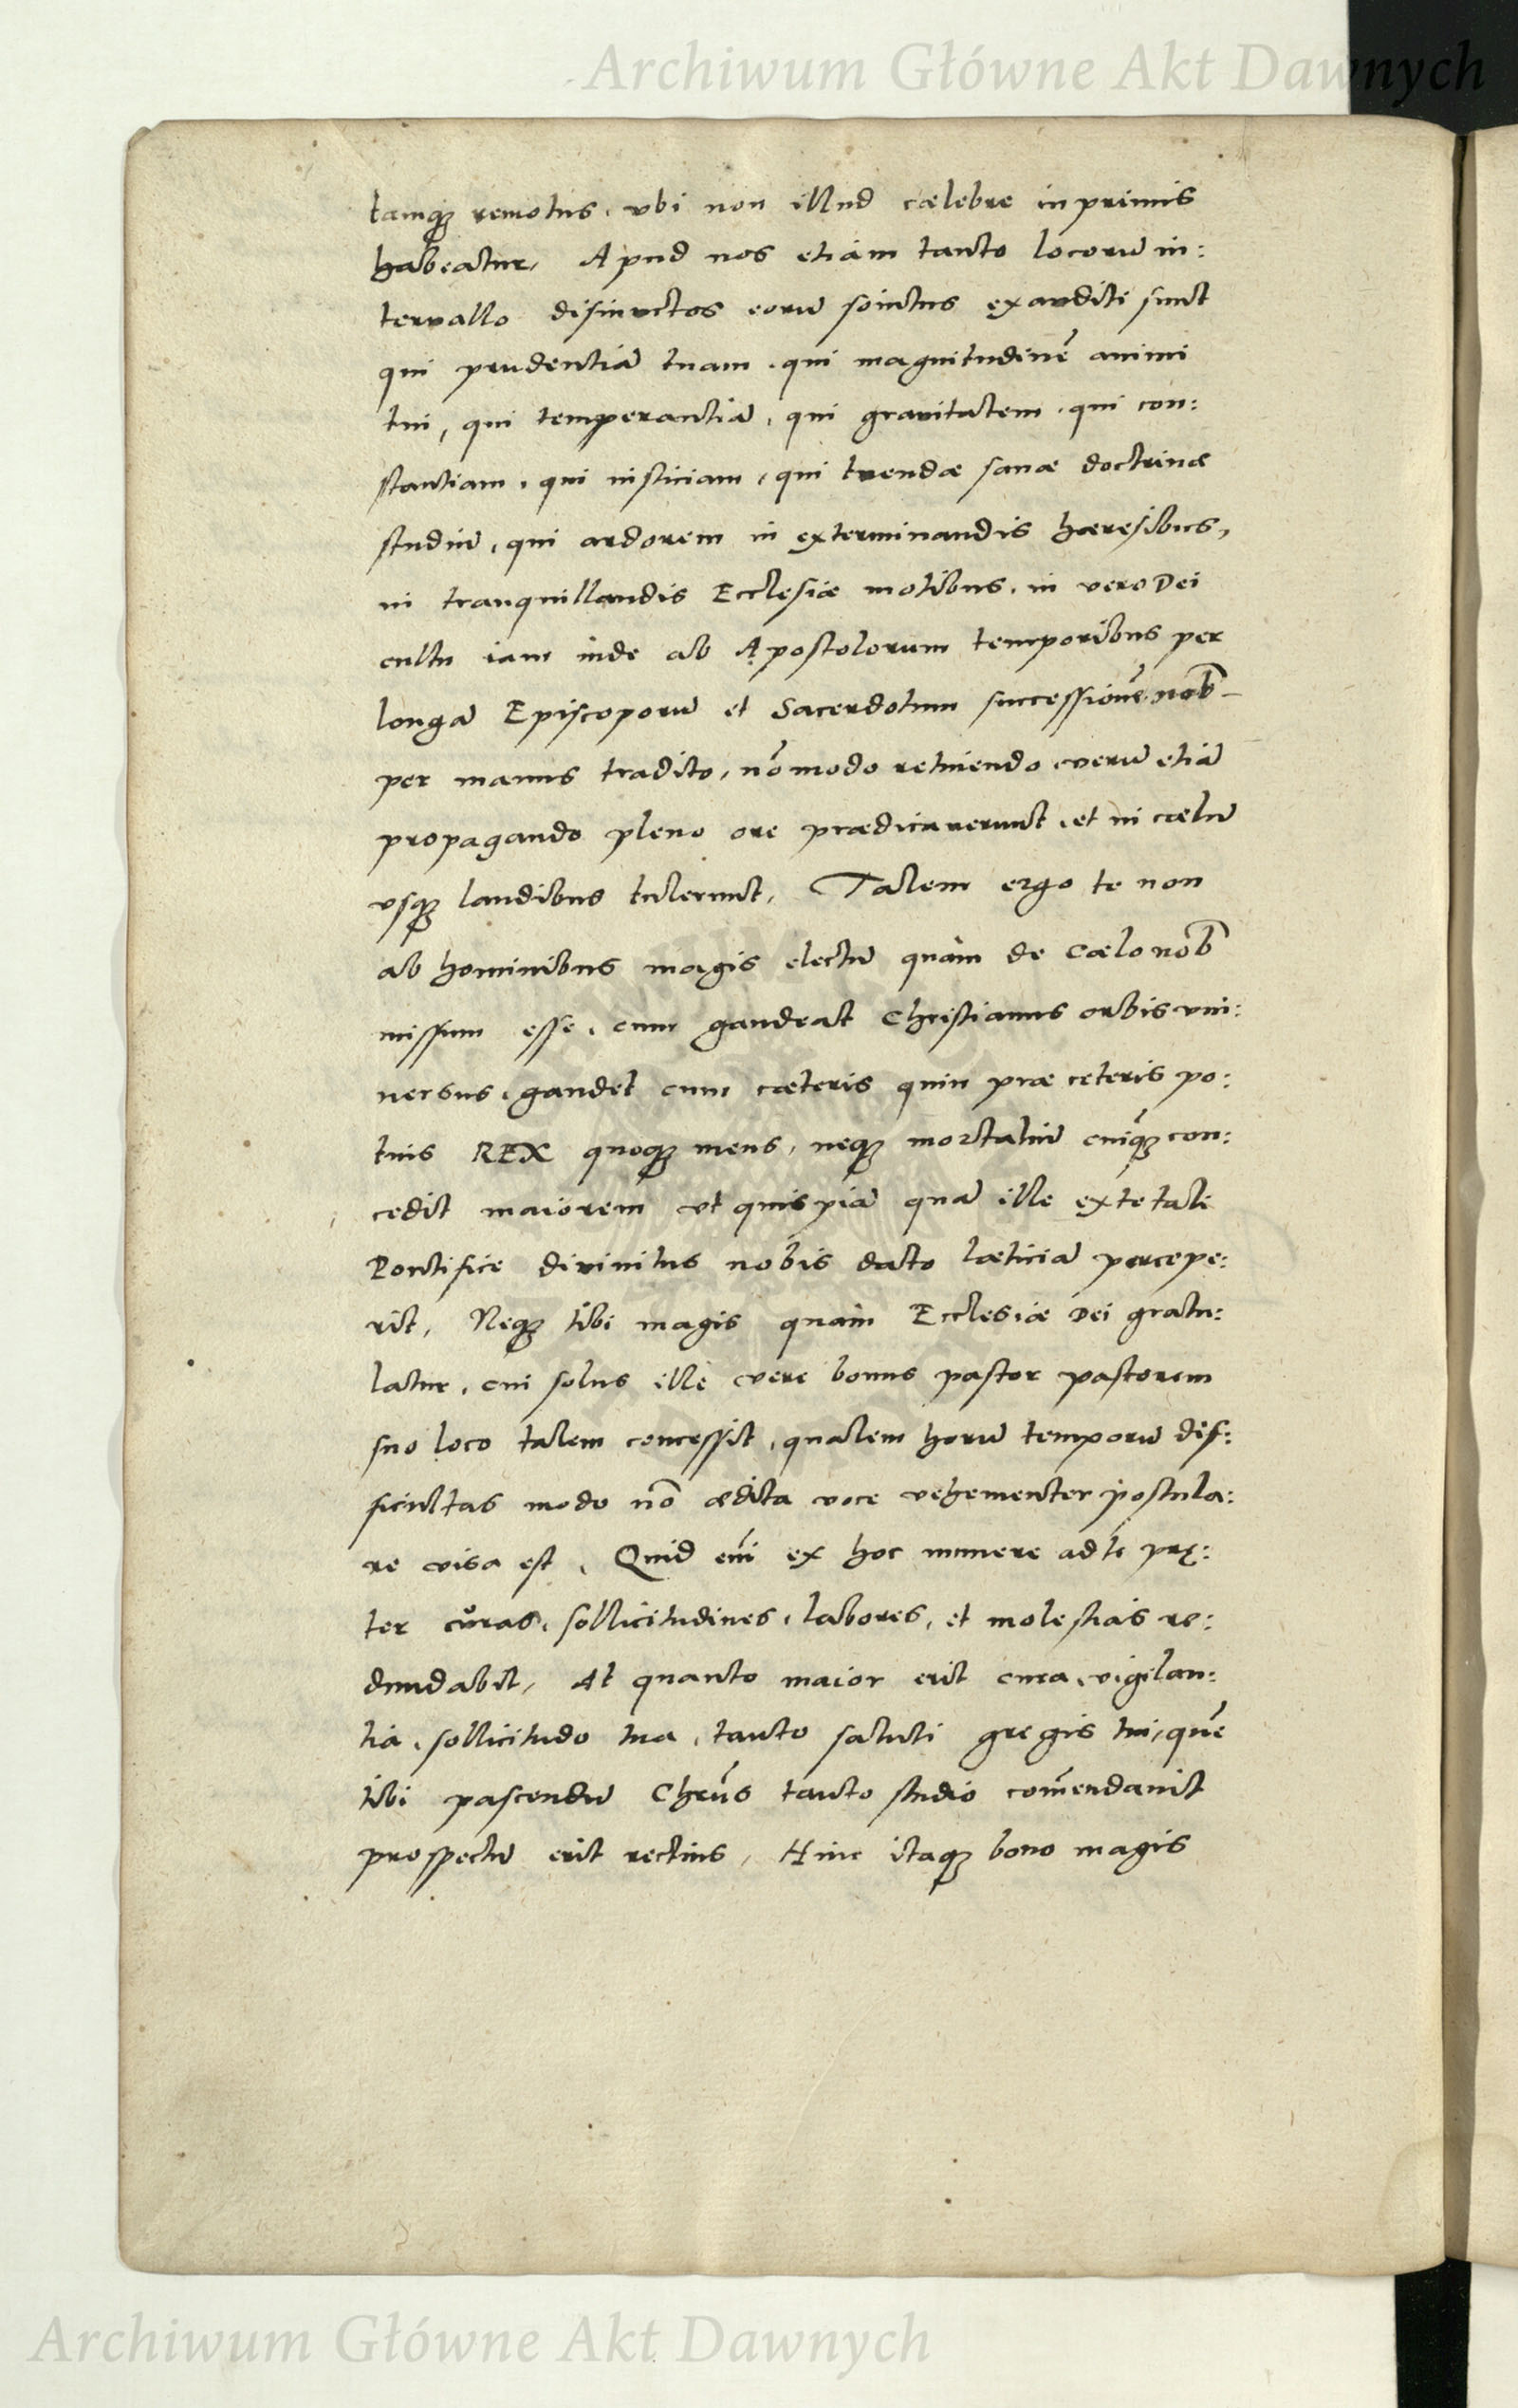 Archiwum Główne Akt Dawnych
tamqꝫ remotus, vbi non illud cælebre in primis
habeatur, Apud nos etiam tanto locorū in:
teruallo disiunctos eorū sonitus exauditi sunt
qui prudentiā tuam, qui magnitudinē animi
tui, qui temperantiā, qui grauitatem, qui con:
stantiam, qui iusticiam, qui tuendæ sanæ doctrinæ
studiū, qui ardorem in exterminandis hæresibus,
in tranquillandis Ecclesiæ motibus, in vero Dei
cultu iam inde ab Apostolorum temporibus per
longā Episcoporū et Sacerdotum successionē nob̄
per manus tradito, nō modo retinendo verū etiā
propagando pleno ore prædicauerunt, et in cælū
vsqꝫ laudibus tulerunt, Talem ergo te non
ab hominibus magis electū quàm de Cælo nob̄
missum esse, cum gaudeat Christianus orbis vni:
uersus, gaudet cum cæteris quin præ ceteris po:
tius REX quoqꝫ meus, neqꝫ mortaliū cuiq̄ꝫ con:
cedit maiorem vt quispiā quā ille ex te tali
Pontifice diuinitus nobis dato læticiā percepe:
rit, Neqꝫ tibi magis quàm Ecclesiæ Dei gratu:
latur, cui solus ille vere bonus pastor pastorem
suo loco talem concessit, qualem horū temporū dif:
ficultas modo nō ædita voce vehementer postula:
re visa est, Quid em̄ ex hoc munere ad te prę:
ter curas, sollicitudines, labores, et molestias re:
dundabit, At quanto maior erit cura, vigilan:
tia, sollicitudo tua, tanto saluti gregis tui, quē
tibi pascendū Chrūs tanto studio com̄endauit
prospectū erit rectius, Hinc itaqꝫ bono magis
Archiwum Główne Akt Dawnych